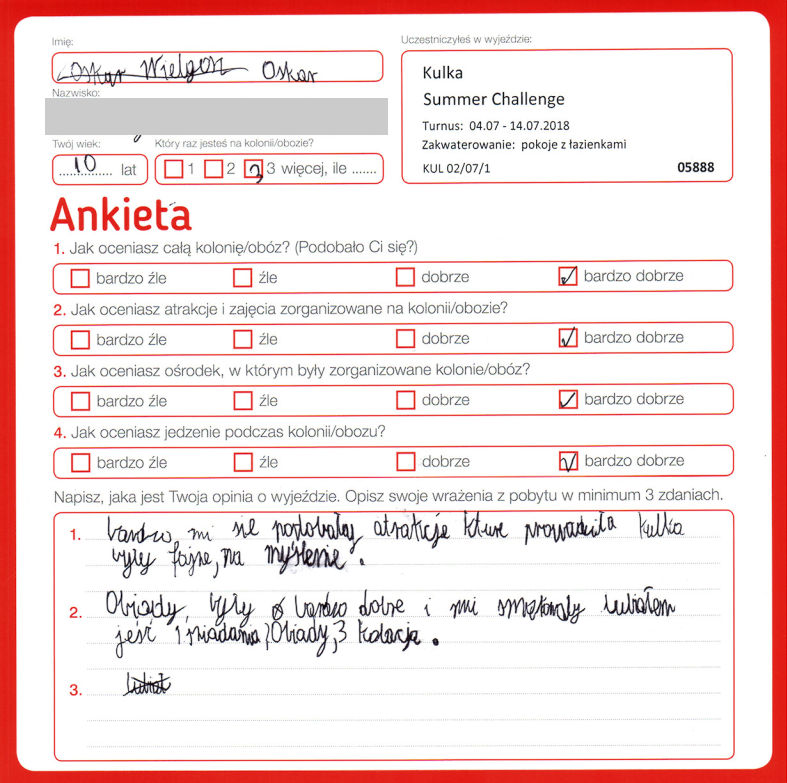 Imię:
Oskar Wielgon Oskar
Nazwisko:
Twój wiek:
10 lat
Który raz jesteś na kolonii/obozie?
1 2 3 więcej, ile .......
Uczestniczyłeś w wyjeździe:
Kulka
Summer Challenge
Turnus: 04.07 - 14.07.2018
Zakwaterowanie: pokoje z łazienkami
KUL 02/07/1 05888
Ankieta
1. Jak oceniasz całą kolonię/obóz? (Podobało Ci się?)
bardzo źle źle dobrze bardzo dobrze
2. Jak oceniasz atrakcje i zajęcia zorganizowane na kolonii/obozie?
bardzo źle źle dobrze bardzo dobrze
3. Jak oceniasz ośrodek, w którym były zorganizowane kolonie/obóz?
bardzo źle źle dobrze bardzo dobrze
4. Jak oceniasz jedzenie podczas kolonii/obozu?
bardzo źle źle dobrze bardzo dobrze
Napisz, jaka jest Twoja opinia o wyjeździe. Opisz swoje wrażenia z pobytu w minimum 3 zdaniach.
1. bardzo, mi sie podobały atrakcje kture prowadziła kulka
były fajne, na myślenie.
2. Obiady, były bardzo dobre i mi smakowały lubiałem
jeść 1 śniadania, 2 Obiady, 3 kolacja.
3.